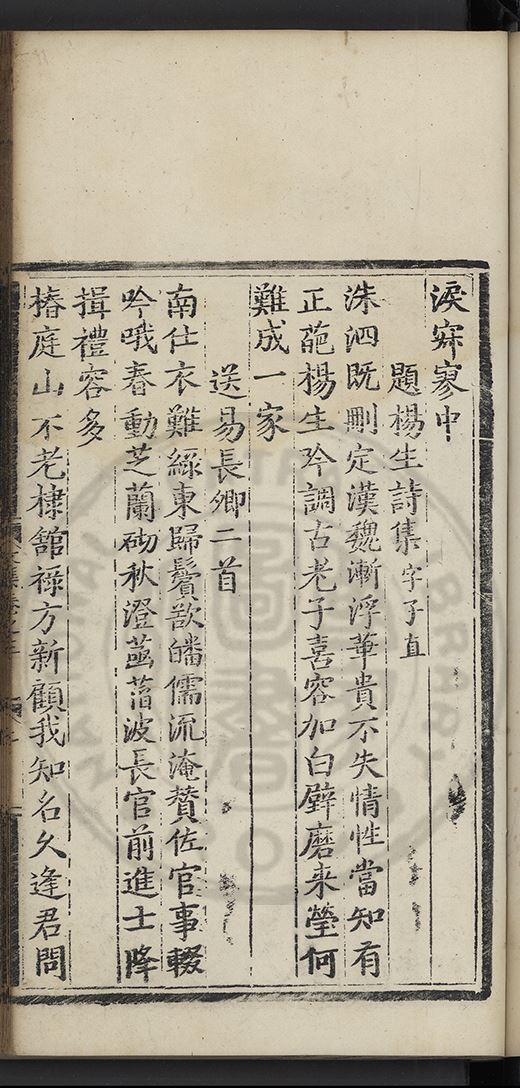 淚寂寥中
題楊生詩集字子直
洙泗既刪定漢魏漸浮華貴不失情性當知有
正葩楊生吟調古老子喜容加白璧磨来瑩何
難成一家
送易長卿二首
南仕衣難綠東歸鬢欲皤儒流淹贊佐官事輟
吟哦春動芝蘭砌秋澄菡萏波長官前進士降
揖禮容多
椿庭山不老棣舘祿方新顧我知名久逢君問